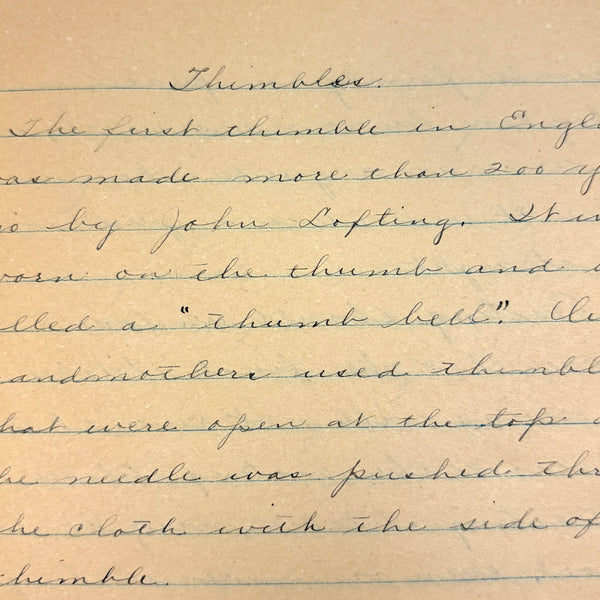 Thimbles.
The first thimble in Engl
as made more than 200 y
o by John Lofting. It w
orn on the thumb and
lled a "thumb bell". Ou
andmothers used thimbl
hat were open at the top a
he needle was pushed thr
he cloth with the side of
thimble.